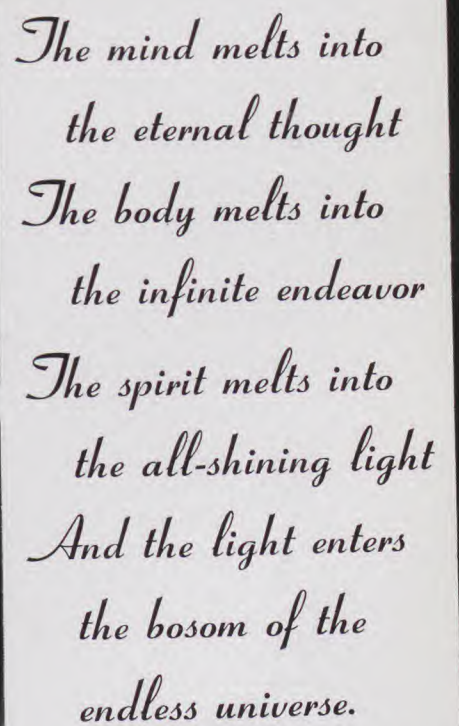 The mind melts into
the eternal thought
The body melts into
the infinite endeavor
The spirit melts into
the all-shining light
And the light enters
the bosom of the
endless universe.